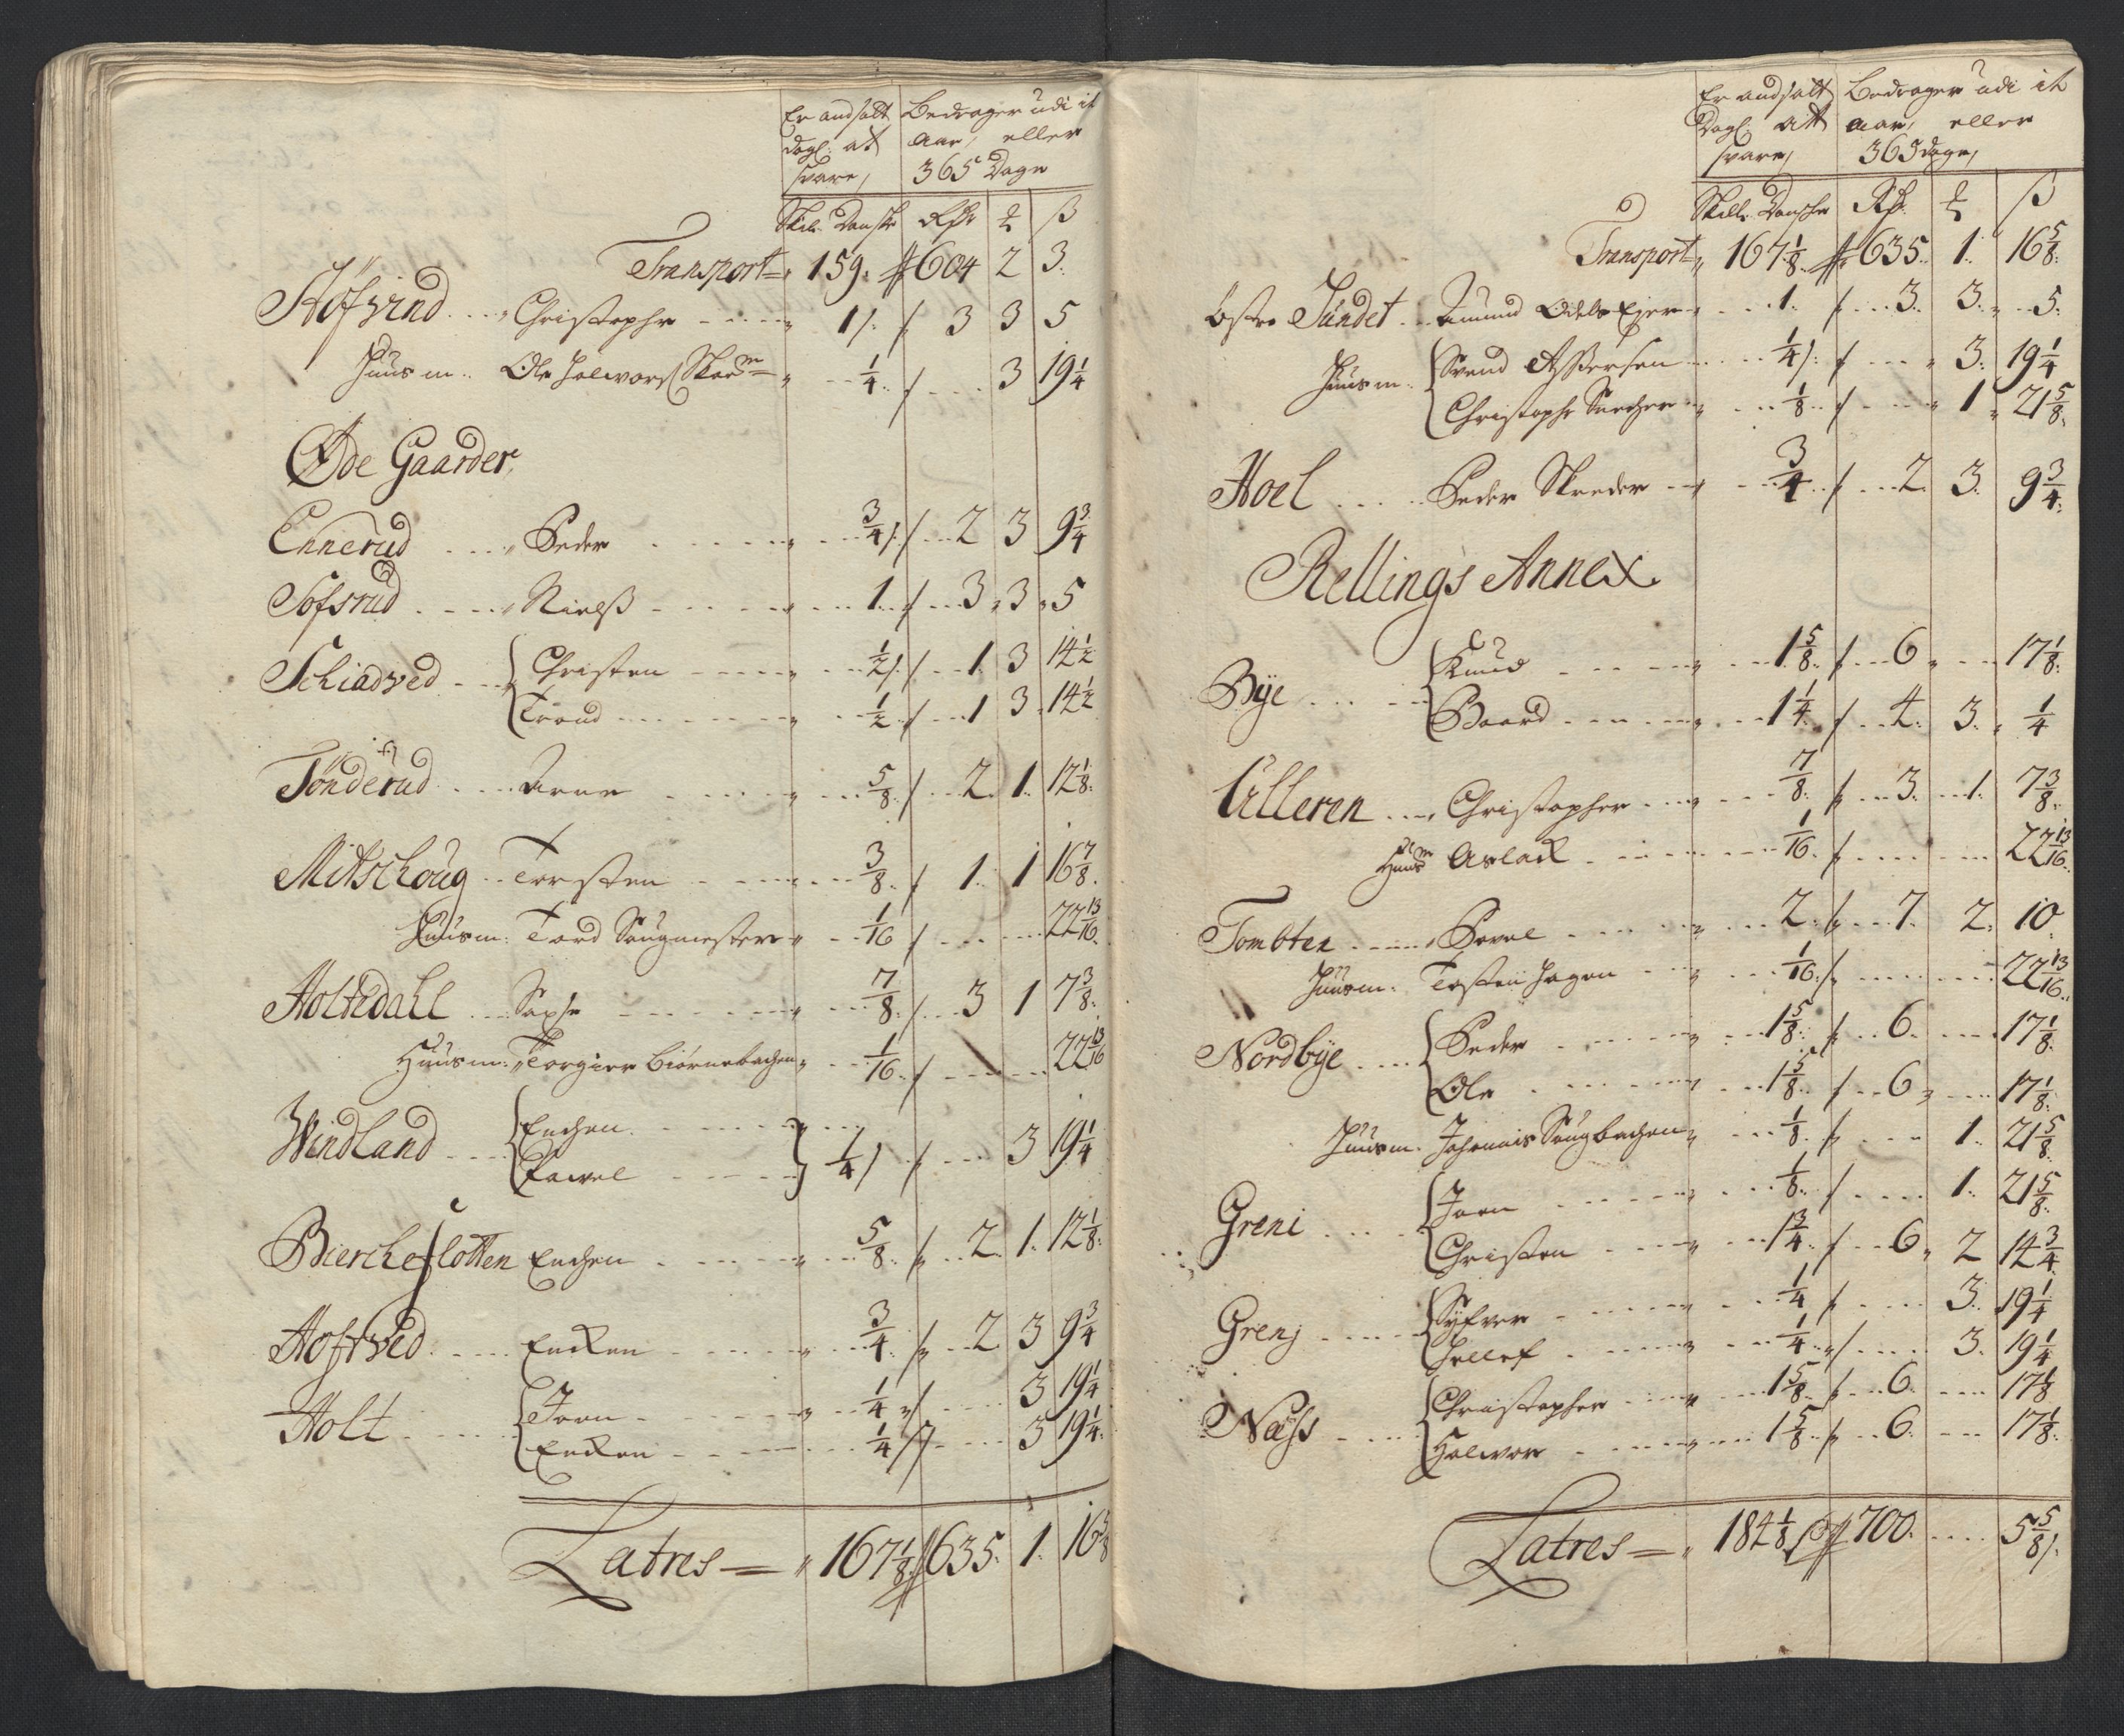 Er andsatt Bedrager udi it
dagl: at aar, eller
svare, 365 Dage
Skill: Danske Rdr ℔ ß
Transport 159. 604 2 3.
Höfsrind Christopher 1/. 3 3 5
Huusm: Ole Halvors 1/4 3 19 1/4
Øde Gaarder
Ennerud Peder 3/4 2 3 9 3/4
Sofsrud Nielß 1 3 3 5
Schiadved Christen 1/2 1 3 14 1/2
Trond 1/2 1 3 14 1/2
Tönderud Arne 5/8 2 1 12 1/8
Mitschoug Torsten 3/8 1 1 16 7/8
Huusm: Tord Saugmester 1/16 22 13/16
Holtedall Saxe 7/8 3 1 7 3/8
Huusm: Torgier Biørnebachen 1/16 22 13/16
Windland Enchen
Pawel 1/4 3 19 1/4
Biercheslotten Enchen 5/8 2 1 12 1/8
Hofved Encken 3/4 2 3 9 3/4
Holt Joen 1/4 3 19 1/4
Encken 1/4 3 19 1/4
Latres 167 1/8 635. 1. 16 5/8
Er andsatt Bedrager udi it
Dagl: att aar, eller
svare, 365 dage,
Skill: Danske Rdr ℔ ß
Transport 167 1/8 635 1 16 5/8
östre Sundet Amund Odels Ejer 1 3 3 5
Huusm: Svend Assersen 1/4 3 19 1/4
Christopher 1/8 1 21 5/8
Hoel Peder Skreder 3/4 2 3 9 3/4
Rellings Annex
Bÿe Knud 1 5/8 6 17 1/8
Baard 1 1/4 4 3 1/4
Ulleren Christopher 7/8 3 1 7 3/8
Huusm Aslack 1/16 22 13/16
Tombten Povel 2 7 2 10
Huusm: Torsten Hagen 1/16 22 13/16
Nordbÿe Peder 1 5/8 6 17 1/8
Ole 1 5/8 6 17 1/8
Huusm. Johannis Saugbachen 1/8 1 21 5/8
Greni Joen 1/8 1 21 5/8
Christen 1 3/4 6 2 14 3/4
Grenj Syfver 1/4 3 19 1/4
Hellef 1/4 3 19 1/4
Næss Christopher 1 5/8 6 17 1/8
Halvor 1 5/8 6 17 1/8
Latres 184 1/8 700. 5 5/8